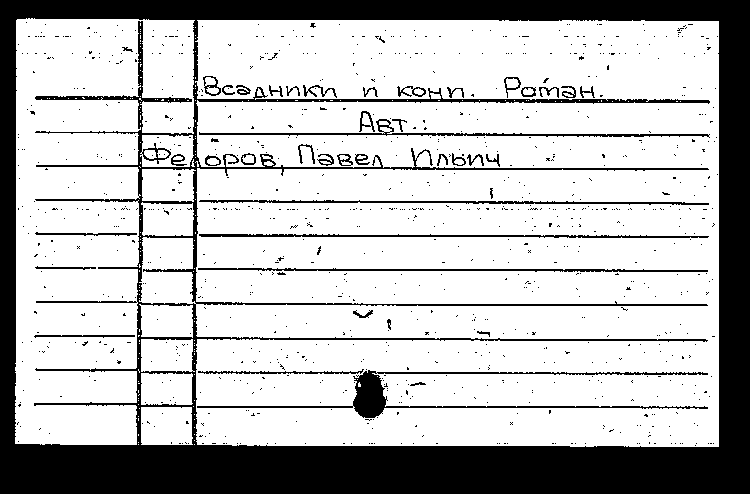 Всадники и кони. Роман.
Авт.:
Федоров, Павел Ильич